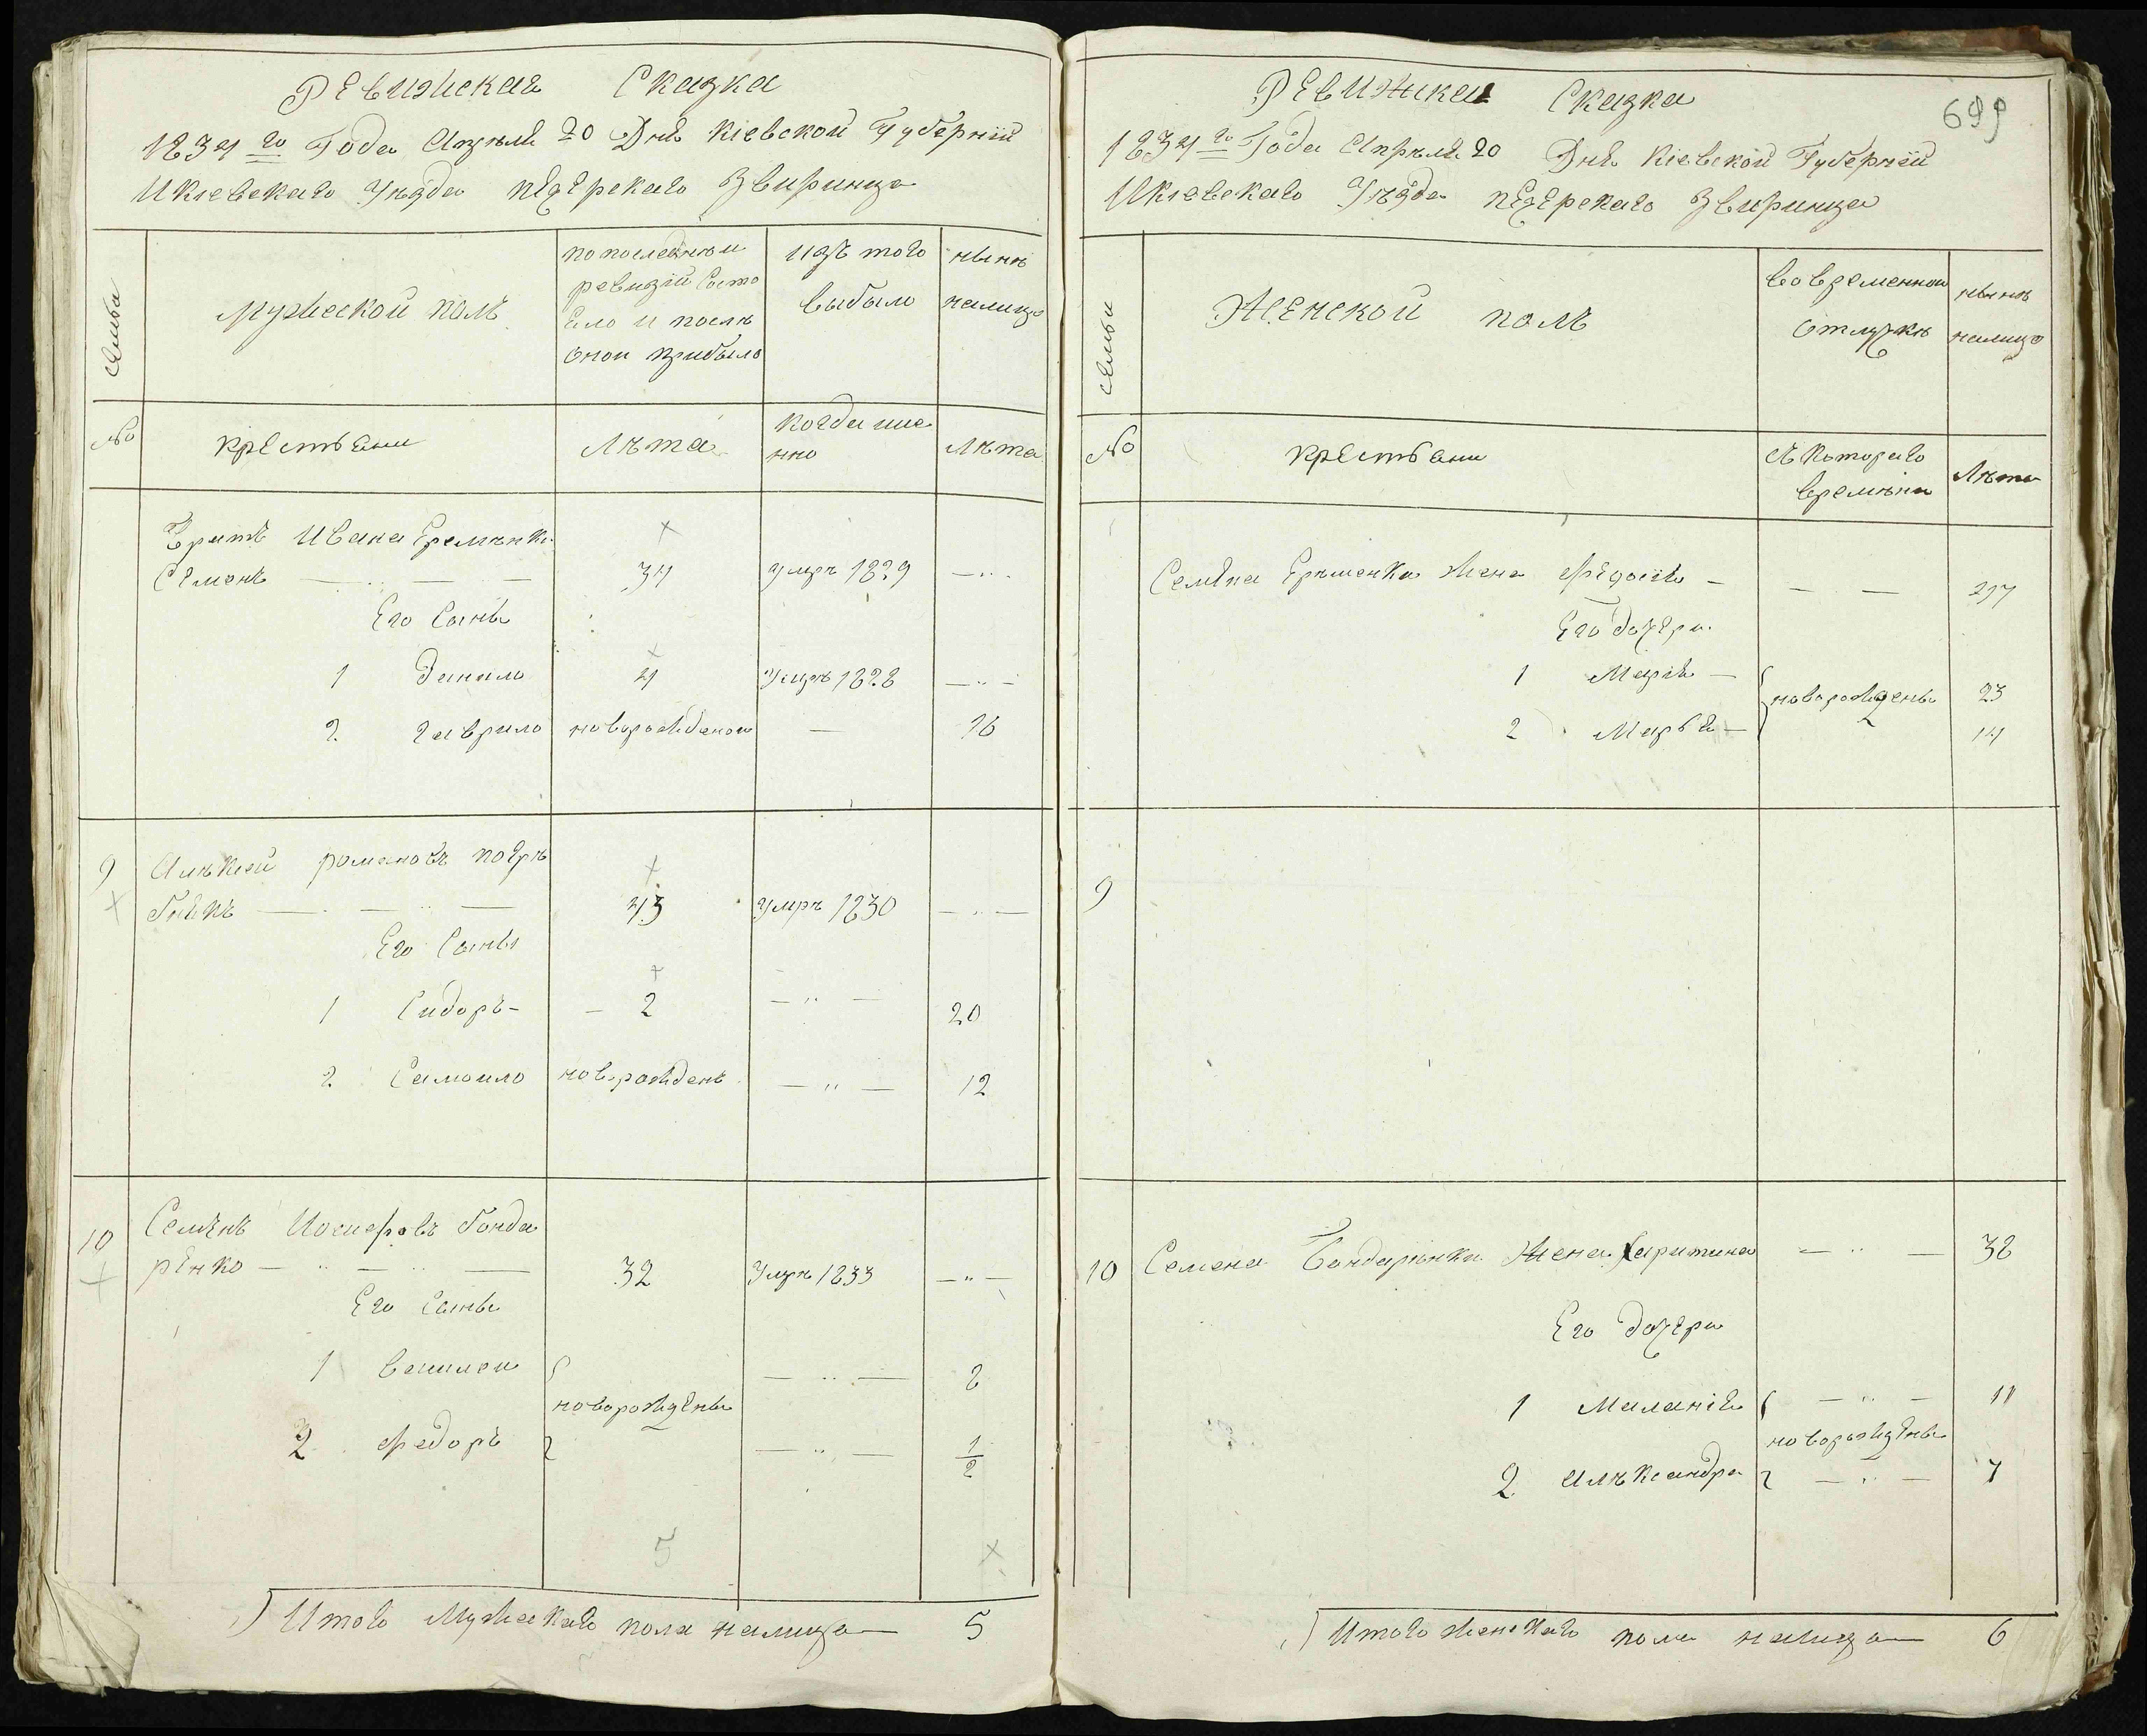 Ревижская Сказка
1834 го Года Апреля 20 Дня Кіевской Губерніи
Икіевскаго Уѣзда печерскаго Звиринца
семьи
мужеской полъ
по последнѣи
ревизіи Состо
Ело и послѣ
оной прибыло
изъ того
выбыло
нынѣ
налицо
№
крестьяни
Лѣта
Когда име
нно
Лѣта
Братъ Ивана Еремѣнка
Семенъ — 34 умръ 1829 —
Его Сынъ
1 Данило 4 Умръ 1828 —
2 Гаврило новорожденои — 16
9 Алѣксей романовъ погрѣ
бнякъ — 43 умръ 1830 —
Его Сыны
1 Сидоръ — 2 — 20
2 Самоило новорожденъ — 12
10 Семѣнъ Иосифовъ бонда
рѣнко — 32 Умръ 1833 —
Его Сыны
1 Василеи — 8
новорождены
2 Федоръ — 1/2
5
Итого Мужскаго пола налицо — 5
Ревижкая Сказка
699
1834 го Года Апрѣля 20 Дня Кіевской Губерніи
Икіевскаго Уѣзда печерскаго Звиринца
семьи
Женской полъ
Во временнои
отлучкѣ
нынѣ
налицо
№
крестьяни
съ Котораго
времѣни
Лѣта
Семѣна Ерѣменка жена Федосія —
Его дочери
1 Марія — новорождены 23
2 Марья — 14
9
10 Семена Бондарѣнка Жена Харитина — 38
Его дочери
1 Маланія — 11
новорождены
2 Алѣксандра — 7
Итого женскаго пола налицо — 6